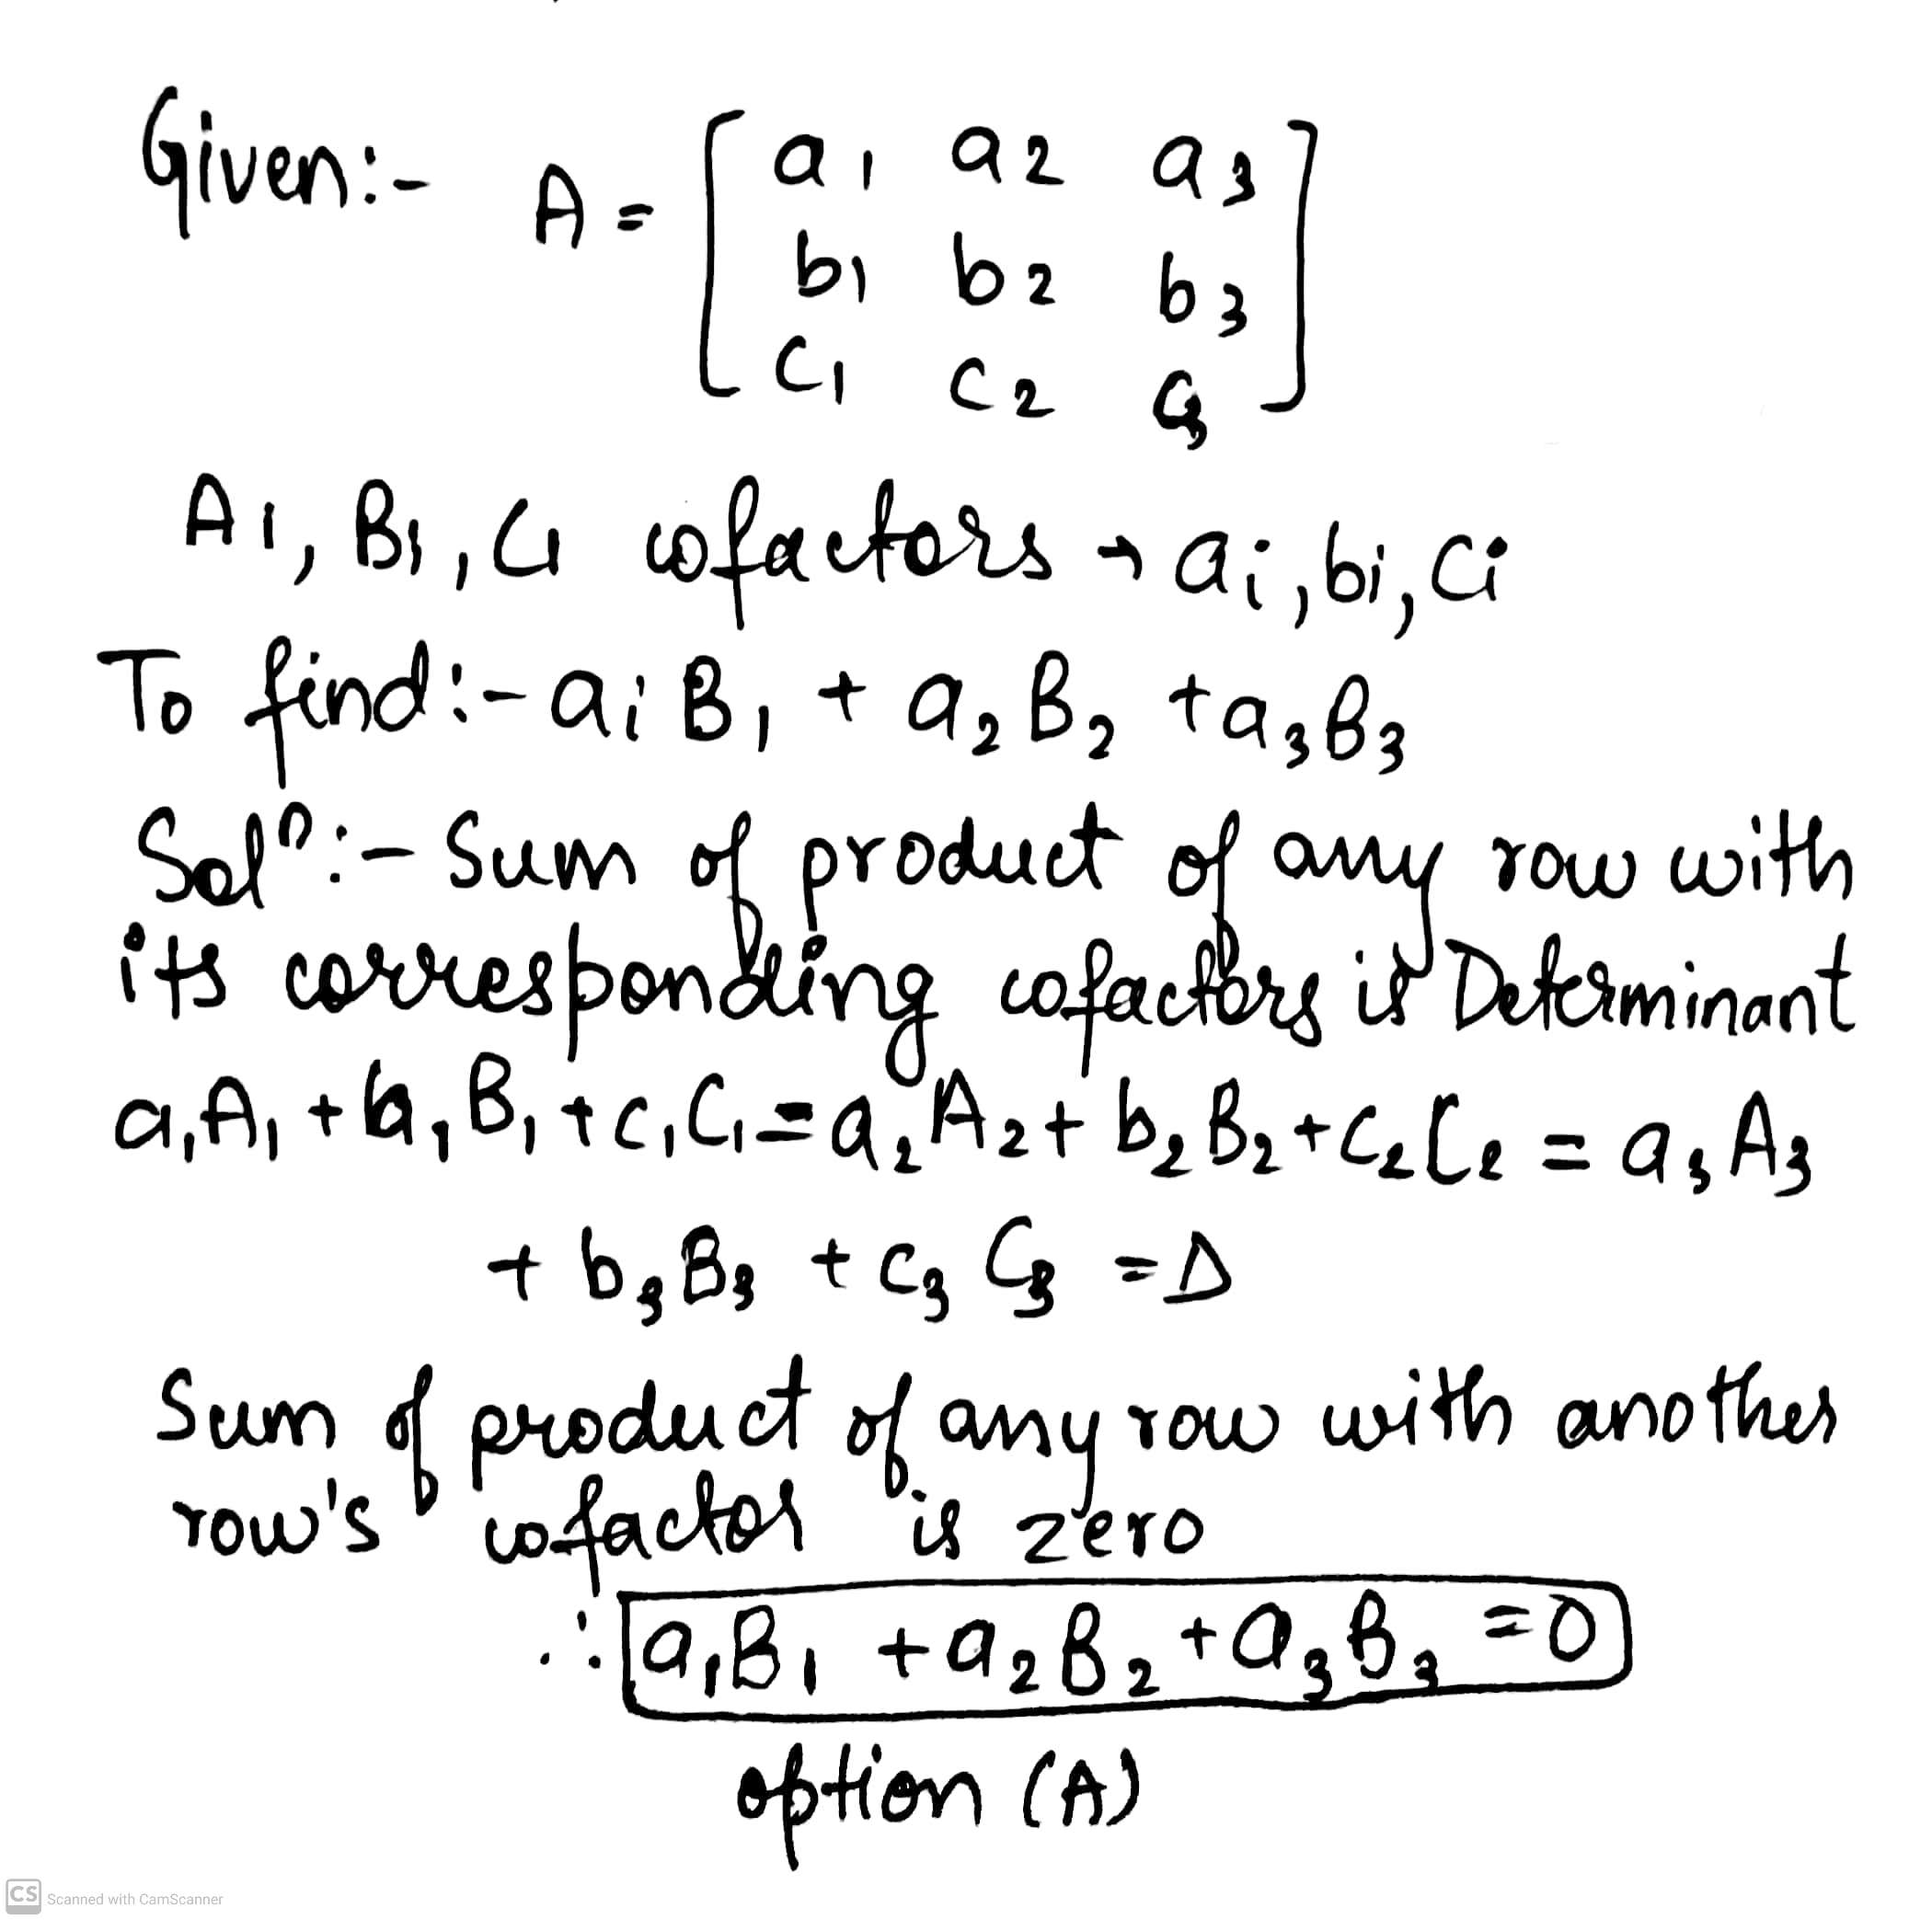 Given:- A = [ a1 a2 a3
b1 b2 b3
c1 c2 c3 ]
A1, B1, C1 cofactors → ai, bi, ci
To find:- aiB1 + a2B2 + a3B3
Solⁿ:- Sum of product of any row with
its corresponding cofactors is Determinant
a1A1 + b1B1 + c1C1 = a2A2 + b2B2 + c2C2 = a3A3
+ b3B3 + c3C3 = D
Sum of product of any row with another
row's cofactor is zero
∴ a1B1 + a2B2 + a3B3 = 0
option (A)
CS Scanned with CamScanner